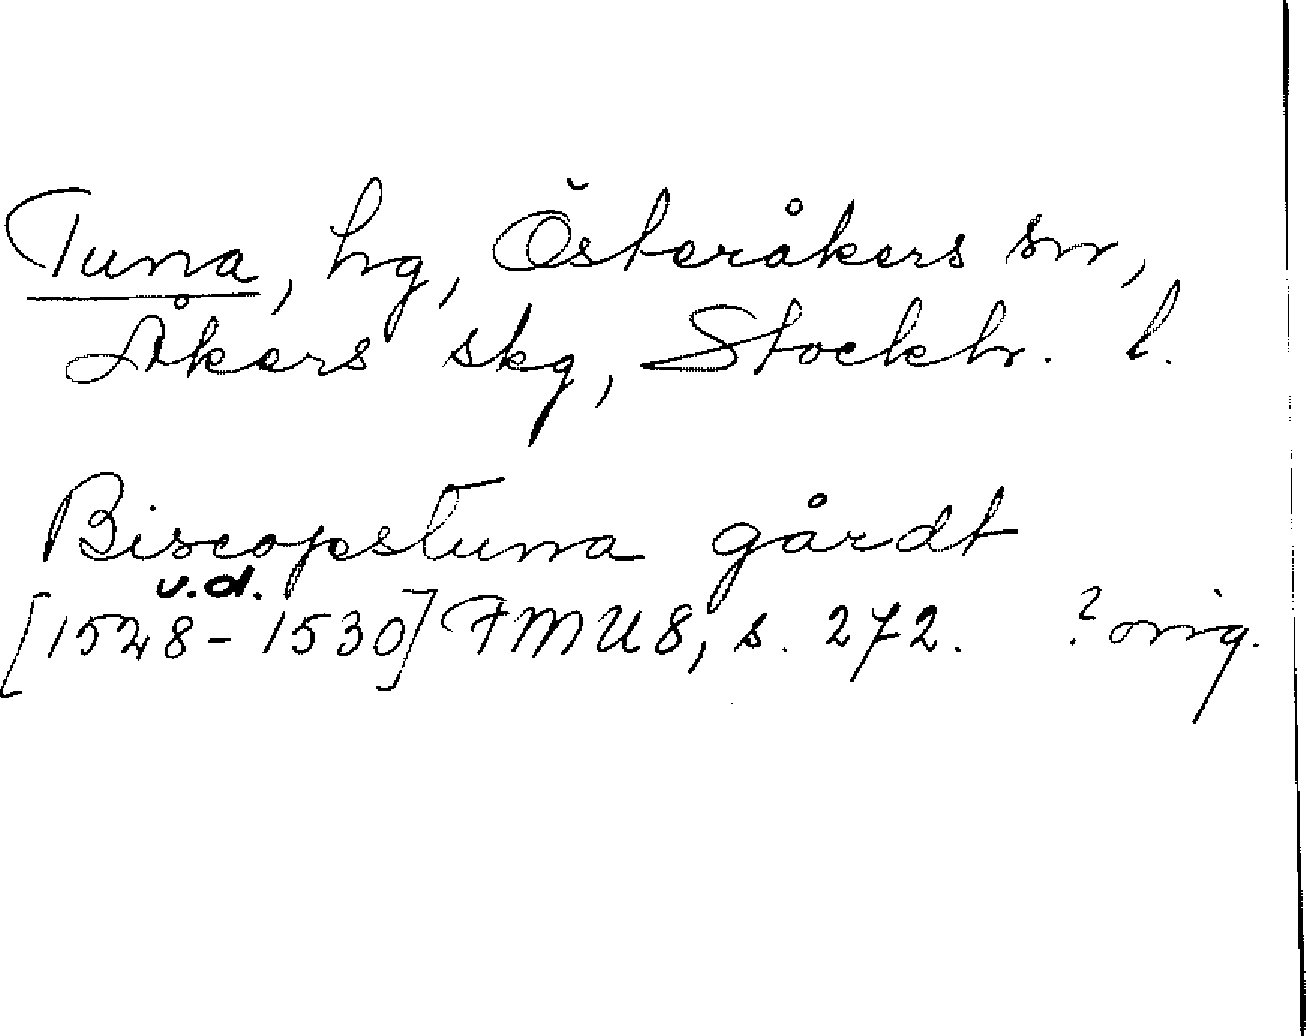 Tuna, hg, Österåkers sn,
Åkers skg, Stockh. l.
Biscopstuna gårdt
u.d.
[1528-1530] FMU 8, s. 272. ? orig.